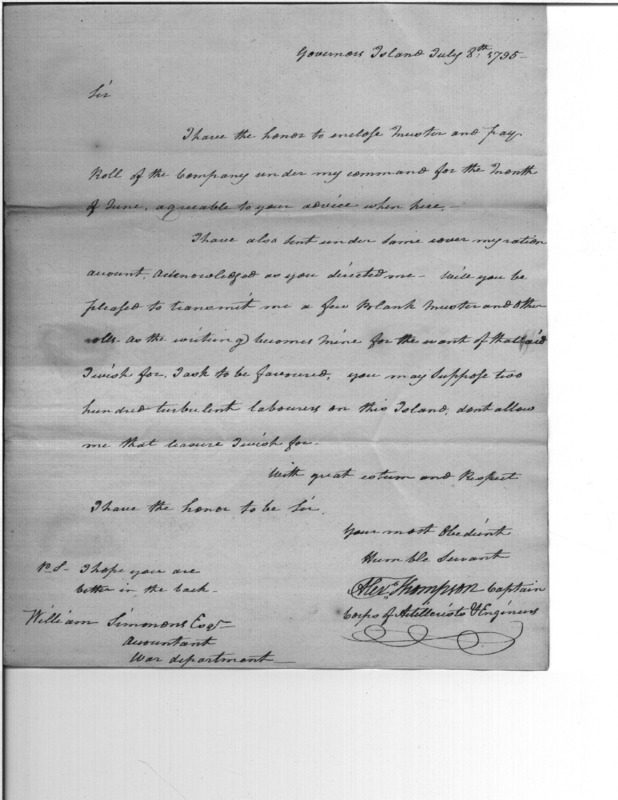 Governors Island July 8th. 1795-
Sir
I have the honor to enclose Muster and pay
Roll of the Company under my command for the Month
of June, agreable to your advice when here.-
I have also sent under same cover my ration
account, acknowledged as you directed me- Will you be
pleased to transmit me a few Blank Muster and other
rolls. as the writing becomes mine for the want of that aid
I wish for. I ask to be favoured, you may suppose two
hundred turbulent labourers on this Island, dont allow
me that leasure I wish for.
With great esteem and Respect
I have the honor to be Sir.
Your most Obedient
Humble Servant
Alexr. Thompson Captain
Corps of Artillerists & Engineers
P.S- I hope you are
better in the back-
William Simmons Esqr
Accountant
War department